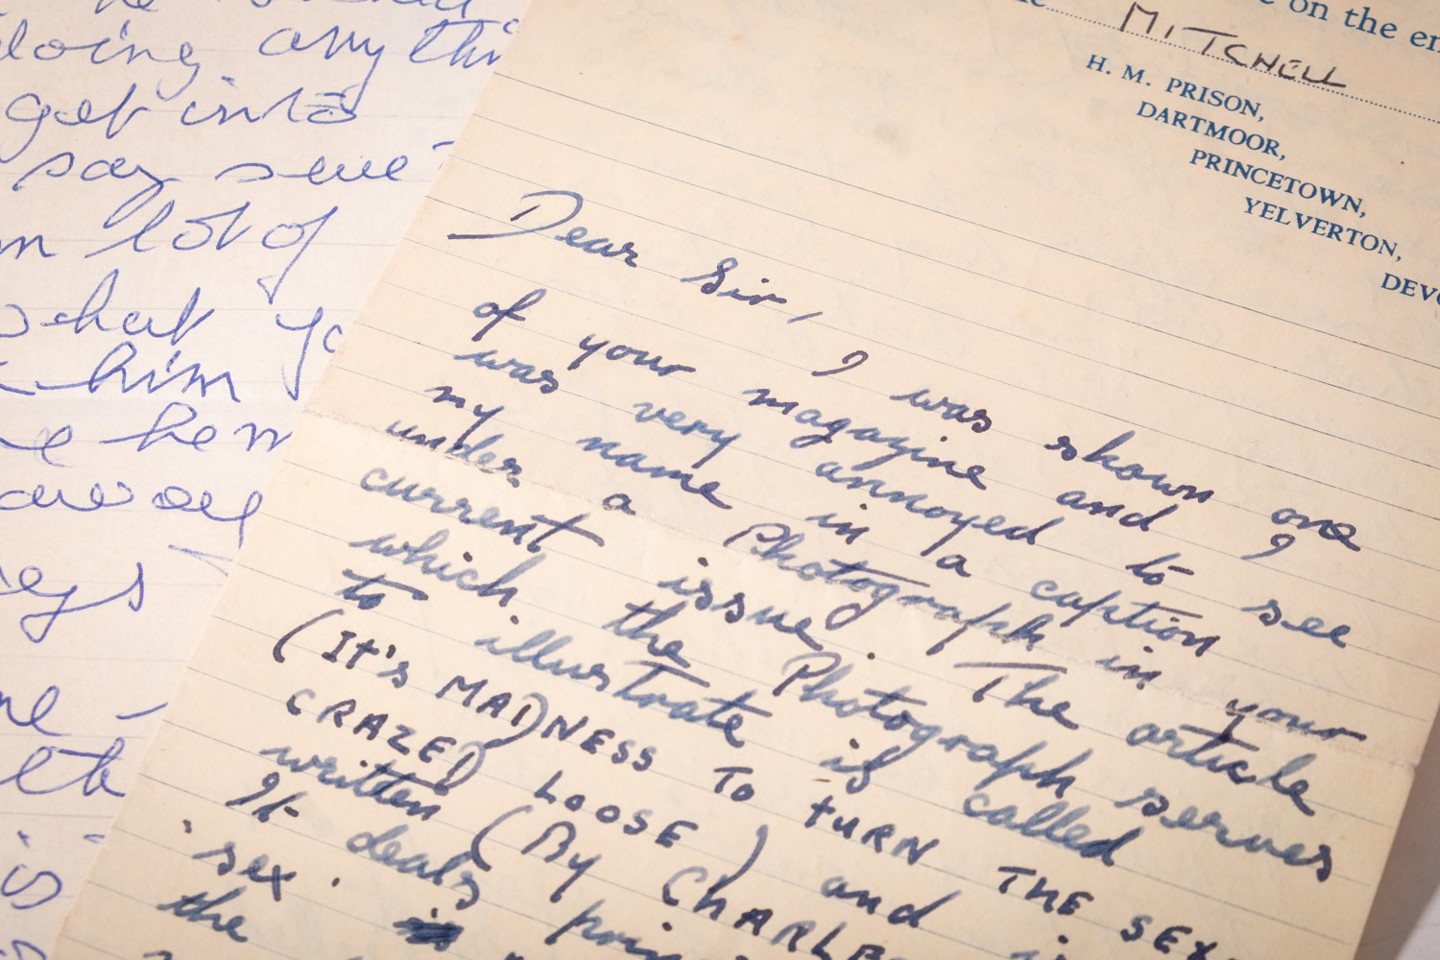 doing anythi
get into
say
lot of
what yo
him
is
on the en
MITCHELL
H. M. PRISON,
DARTMOOR,
PRINCETOWN,
YELVERTON,
DEVO
Dear Sir,
I was shown one
of your magazine and I
was very annoyed to see
my name in a caption
under a Photograph in your
current issue. The article
which the Photograph serves
to illustrate is called
(It's MADNESS TO TURN THE SEX
CRAZED LOOSE) and
written (By CHARLE
It deals prin
'sex'.
the